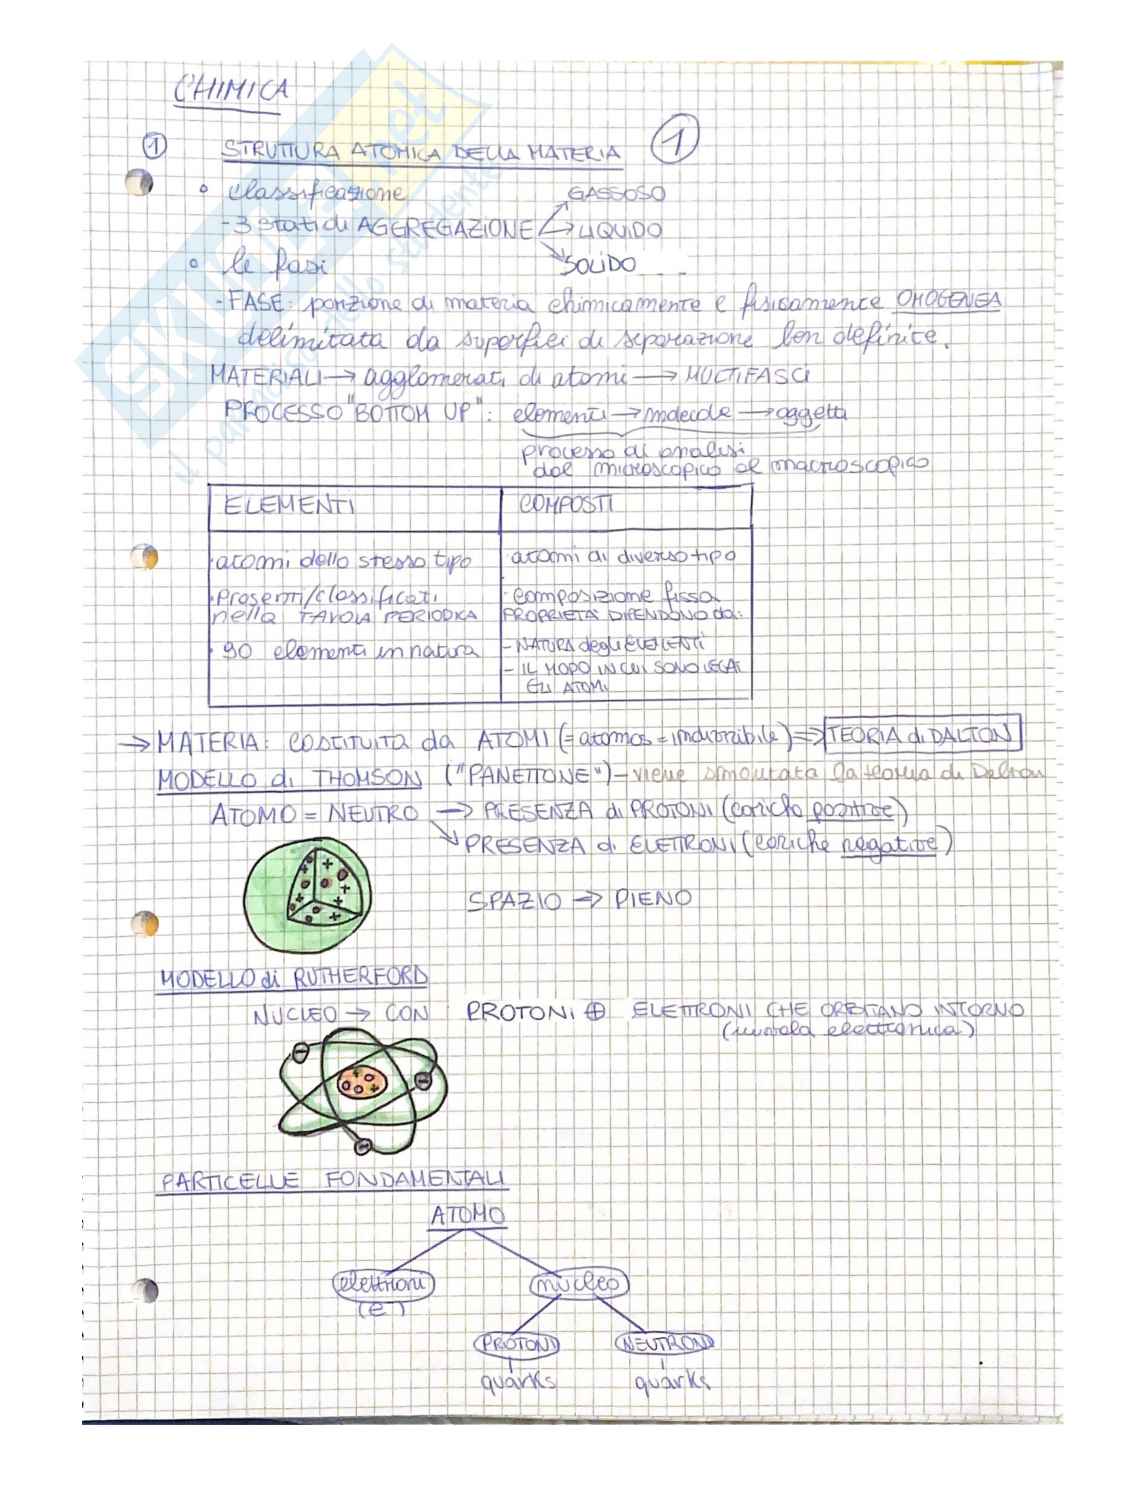 CHIMICA
① STRUTTURA ATOMICA DELLA MATERIA ①
• classificazione GASSOSO
- 3 stati di AGGREGAZIONE → LIQUIDO
• le fasi SOLIDO
- FASE: porzione di materia chimicamente e fisicamente OMOGENEA
delimitata da superfici di separazione ben definite.
MATERIALI → agglomerati di atomi → MULTIFASCI
PROCESSO "BOTTOM UP": elementi → molecole → oggetti
processo di analisi
dal microscopico al macroscopico
ELEMENTI COMPOSTI
· atomi dello stesso tipo · atomi di diverso tipo
· Presenti/classificati · composizione fissa
nella TAVOLA PERIODICA PROPRIETA' DIPENDONO da:
· 90 elementi in natura - NATURA degli ELEMENTI
- IL MODO IN CUI SONO LEGATI
GLI ATOMI
→ MATERIA: COSTITUITA da ATOMI (= atomos = indivisibile) ⇒ TEORIA di DALTON
MODELLO di THOMSON ("PANETTONE") - viene smontata la teoria di Dalton
ATOMO = NEUTRO → PRESENZA di PROTONI (cariche positive)
↘ PRESENZA di ELETTRONI (cariche negative)
SPAZIO → PIENO
MODELLO di RUTHERFORD
NUCLEO → CON PROTONI ⊕ ELETTRONI CHE ORBITANO INTORNO
(nuvola elettronica)
PARTICELLE FONDAMENTALI
ATOMO
elettroni nucleo
(e⁻)
PROTONI NEUTRONI
quarks quarks
SKUOLA.net
il paradiso dello studente